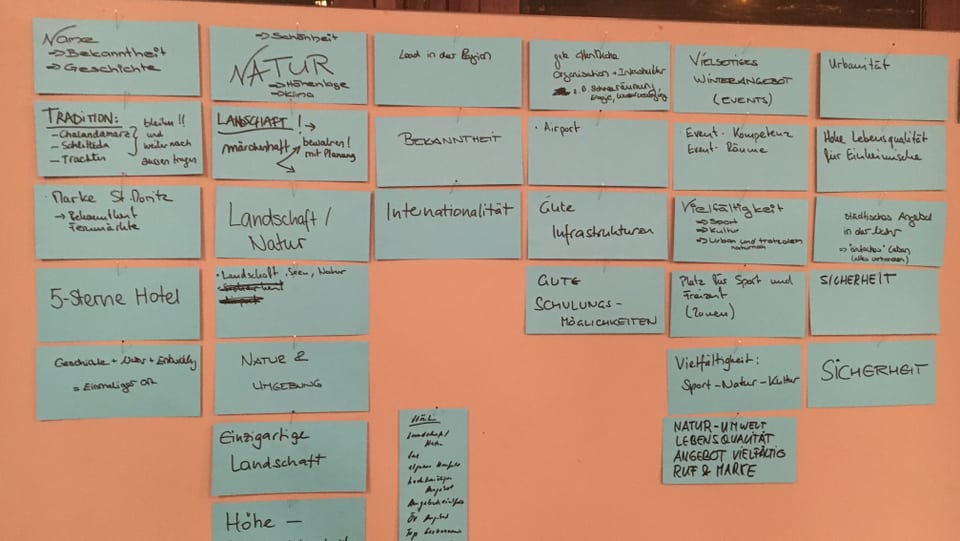 Name
→ Bekanntheit
→ Geschichte
TRADITION:
- Chalandamarz
- Schlitteda
- Trachten
bleiben !!
und
weiter nach
aussen tragen
· Marke St. Moritz
→ Bekanntheit
Fernmärkte
5-Sterne Hotel
Geschichte +
= Einmaliger Ort
→ Schönheit
NATUR
→ Höhenlage
→ Klima
LANDSCHAFT ! →
märchenhaft
bewahren!
mit Planung
Landschaft /
Natur
· Landschaft, Seen, Natur
NATUR &
UMGEBUNG
Einzigartige
Landschaft
Höhe -
Lead in der Region
BEKANNTHEIT
Internationalität
Landschaft/
Natur
Angebot
gute öffentliche
Organisation + Infrastruktur
z.B. Schneeräumung,
Energie, Wasserversorgung
· Airport
Gute
Infrastrukturen
GUTE
SCHULUNGS-
MÖGLICHKEITEN
VIELSEITIGES
WINTERANGEBOT
(EVENTS)
· Event-Kompetenz
Event-Räume
VIELFÄLTIGKEIT
→ Sport
→ Kultur
→ Urban und trotzdem
naturnah
Platz für Sport und
Freizeit
(Zonen)
Vielfältigkeit:
Sport-Natur-Kultur
NATUR-UMWELT
LEBENSQUALITÄT
ANGEBOT VIELFÄLTIG
RUF & MARKE
Urbanität
Hohe Lebensqualität
für Einheimische
städtisches Angebot
in der Natur
⇒ "einfaches" Leben
(alles vorhanden)
SICHERHEIT
SICHERHEIT